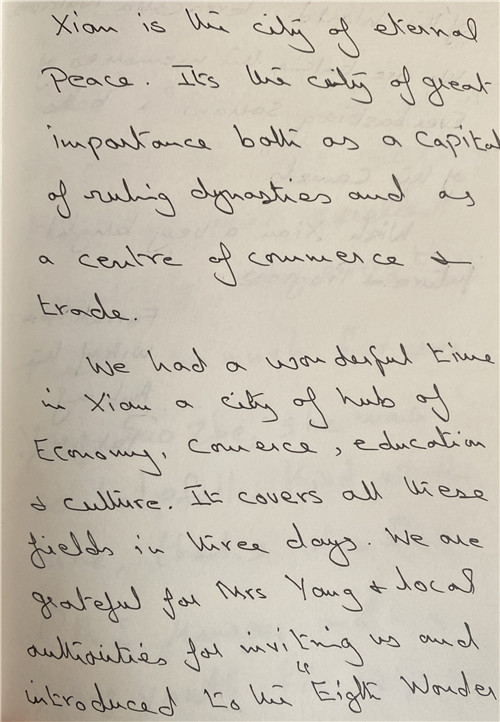 Xian is the city of eternal
Peace. Its the city of great
importance both as a Capital
of ruling dynasties and as
a centre of commerce &
trade.
We had a wonderful time
in Xian a city of hub of
Economy, Comerce, education
& culture. It covers all these
fields in three days. We are
grateful for Mrs Yang & local
authorities for inviting us and
introduced to the "Eigth Wonder